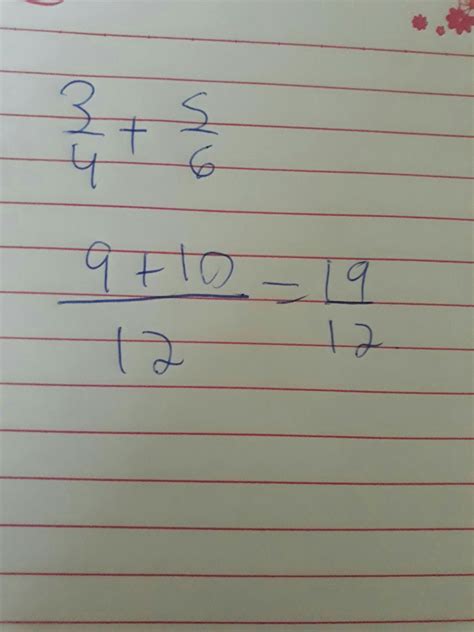 3/4 + 5/6
9+10/12 = 19/12